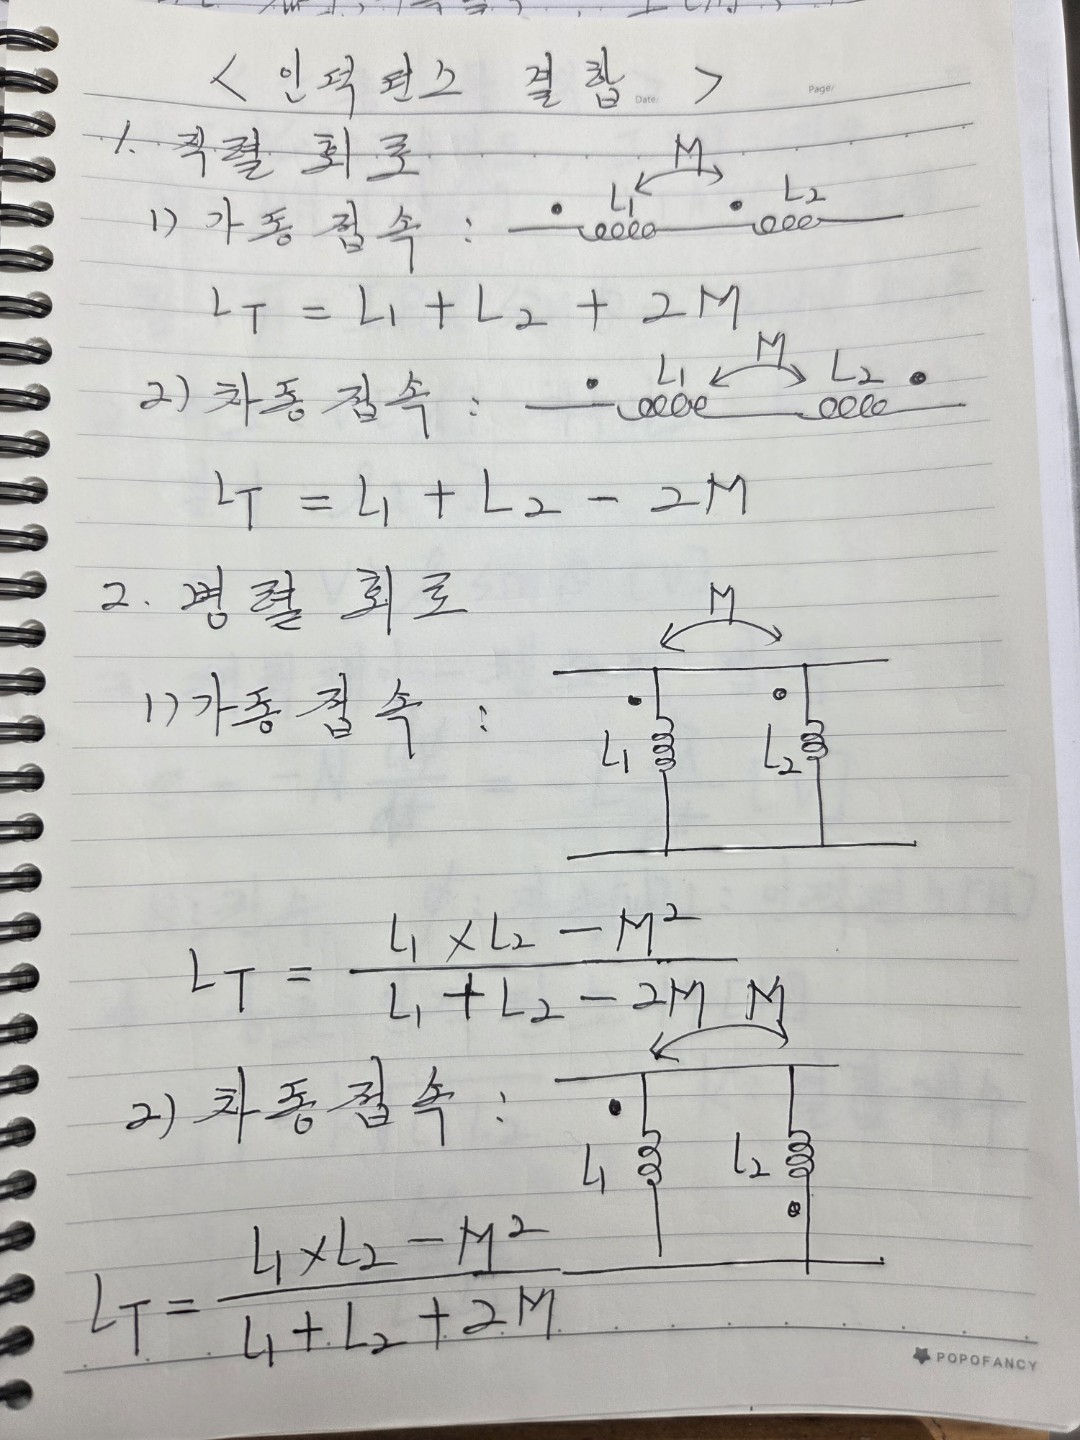 < 인덕턴스 결합 >
Date. Page/
1. 직렬 회로
1) 가동접속 : L1 M L2
LT = L1 + L2 + 2M
2) 차동접속 : L1 M L2
LT = L1 + L2 - 2M
2. 병렬 회로
M
1) 가동접속 :
L1 L2
LT = (L1 × L2 - M²) / (L1 + L2 - 2M)
M
2) 차동접속 :
L1 L2
LT = (L1 × L2 - M²) / (L1 + L2 + 2M)
POPOFANCY